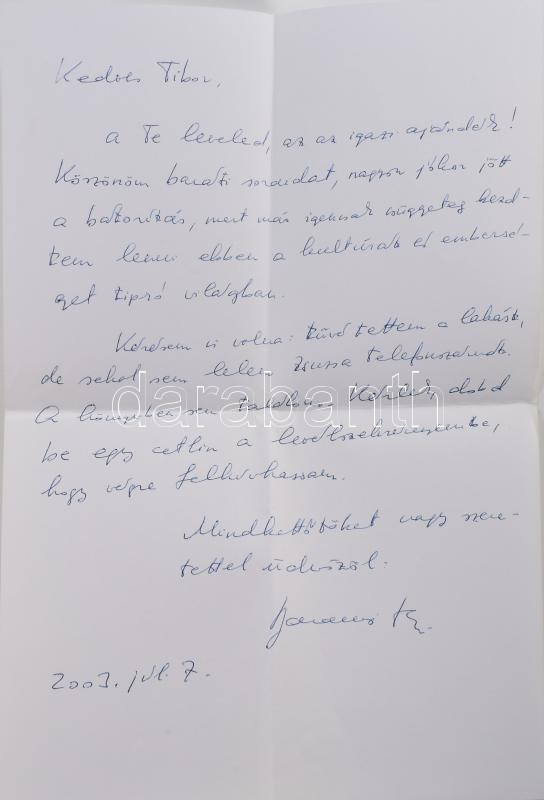 Kedves Tibor,
a Te leveled, az az igazi ajándék!
Köszönöm baráti soraidat, nagyon jókor jött
a bátorítás, mert már igencsak csüggeteg kezd-
tem lenni ebben a kultúrát és embersé-
get tipró világban.
Kérésem is volna: tűvé tettem a lakást,
de sehol sem lelem Zsuzsa telefonszámát.
A könyvben sem találom. Kérlek, dobd
be egy cetlin a levélszekrényembe,
hogy végre felhívhassam.
Mindkettőtöket nagy szere-
tettel üdvözöl:
2003. júl. 7.
darabanth